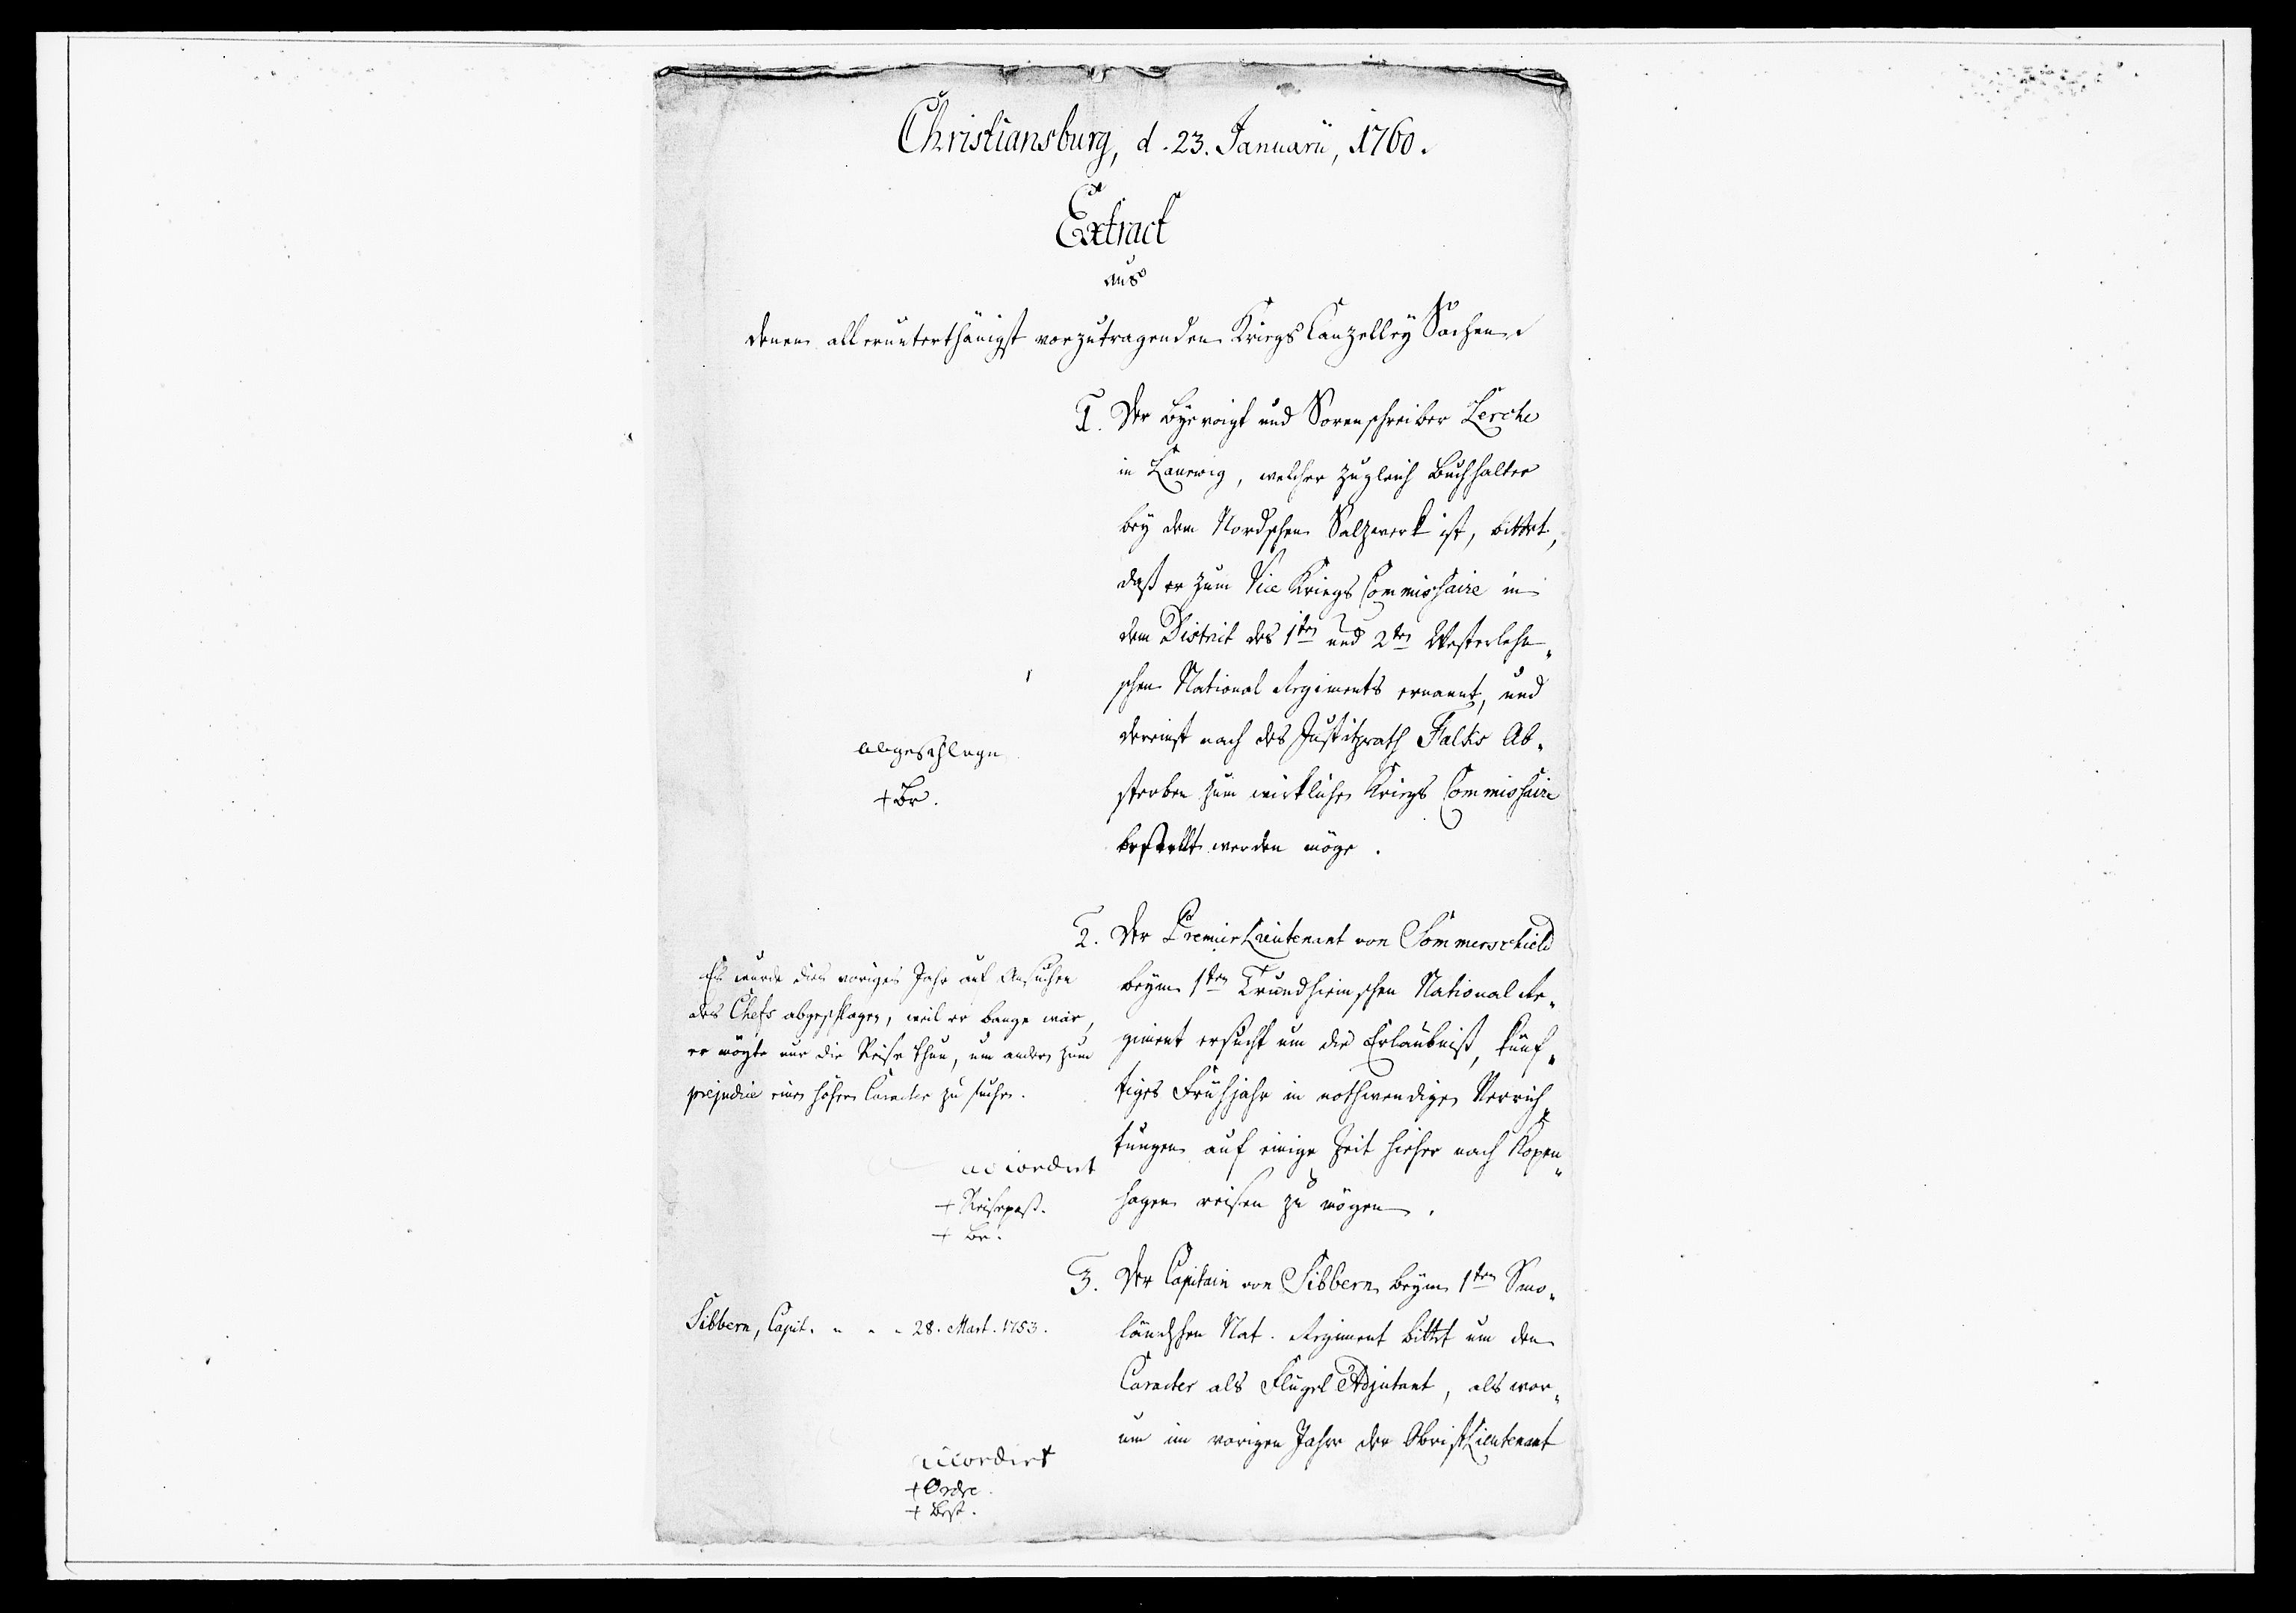 Christiansburg, d. 23. Januarii, 1760.
Extract
aus
denen allerunterthänigst vorzutragenden Kriegs Canzelley Sachen
1. Der Byevoigt und Sorenschreiber Lerche
in Laurwig, welcher zugleich Buchhalter
bey dem Nordschen Salzwerk ist, bittet,
daß er zum Vice Kriegs Commissaire in
dem District des 1ten und 2ten Westerlehn-
schen National Regiments ernannt, und
dereinst nach des Justitzrath Falks Ab-
sterben zum wirklichen Kriegs Commissaire
bestellt werden möge.
abgeschlagen
+ Br.
2. Der Premier Lieutenant von Sommerschield
beym 1ten Trundhiemschen National Re-
giment ersucht um die Erlaubniß, künf-
tiges Frühjahr in nothwendigen Verrich-
tungen auf einige Zeit hieher nach Kopen-
hagen reisen zu mögen.
Es wurde dies voriges Jahr auf Ansuchen
des Chefs abgeschlagen, weil er bange war,
er mögte nur die Reise thun, um andern zum
prejudice einen höhern Caracter zu suchen.
accordirt
+ Reisepaß.
+ Br.
3. Der Capitain von Sibbern beym 1ten Smo-
länschen Nat. Regiment bittet um den
Caracter als Flügel Adjutant, als wor-
um im vorigen Jahre der Obrist Lieutenant
Sibbern, Capit. - - - 28. Mart. 1753.
accordirt
+ Ordre.
+ Best.